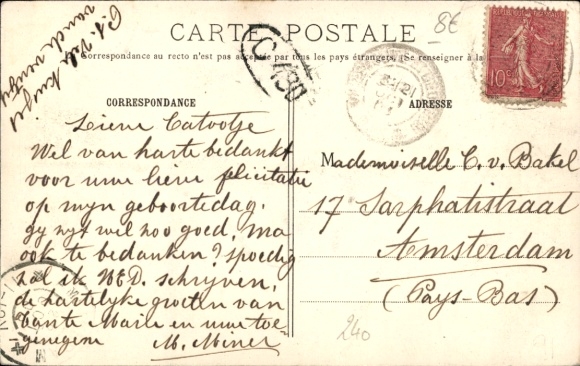 CARTE POSTALE
8€
Correspondance au recto n'est pas acceptée par tous les pays étrangers. (Se renseigner à la
CORRESPONDANCE
ADRESSE
10
Lieve Catootje
Wel van harte bedankt
voor uwe lieve felicitatie
op myn geboortedag.
gy zyt wel zoo goed, ma
ook te bedanken? spoedig
zal ik UED. schrijven,
de hartelyke groeten van
tante Marie en uwe toe-
genegene M. Miner
Mademoiselle C. v. Bakel
17 Sarphatistraat
Amsterdam
(Pays-Bas)
240